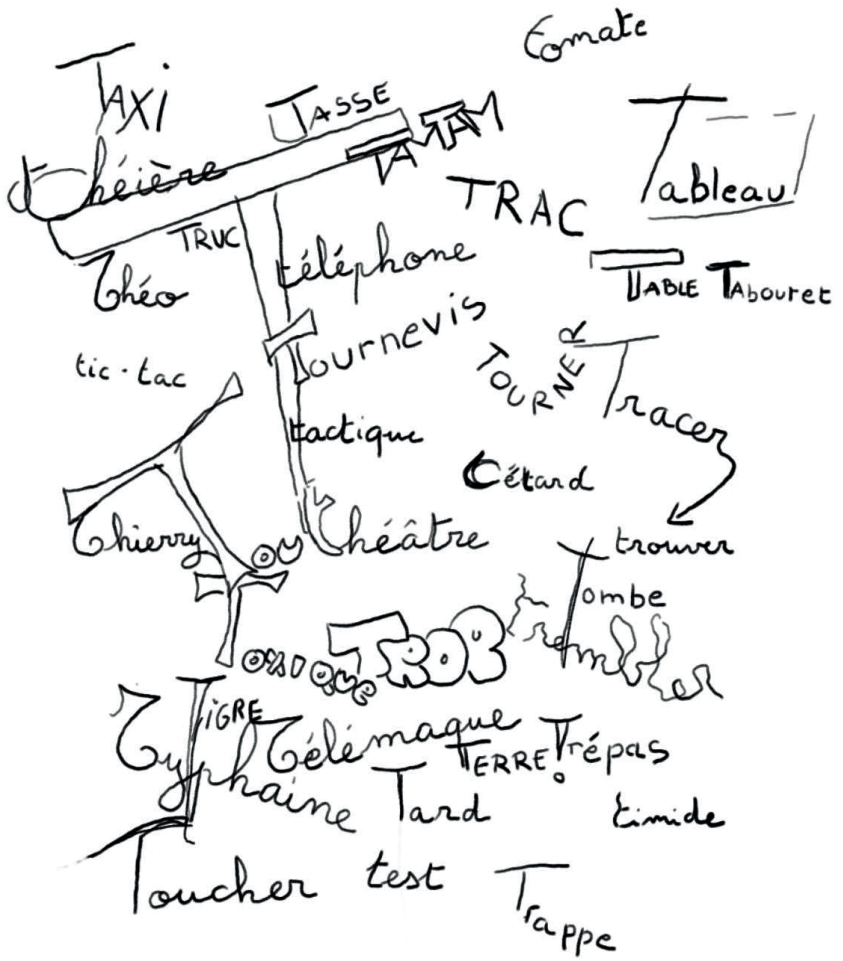 Tomate
TAXI
TASSE
TAMTAM
Théière
TRAC
Tableau
TRUC
téléphone
Théo
TABLE TAbouret
Tournevis
TOURNER
tic-tac
Tracer
tactique
Têtard
Thierry
TOU
Théâtre
trouver
Tombe
Toxique
TROP
trembler
TIGRE
Typhaine
Télémaque
TERRE
Trépas
Tard
timide
Toucher
test
Trappe